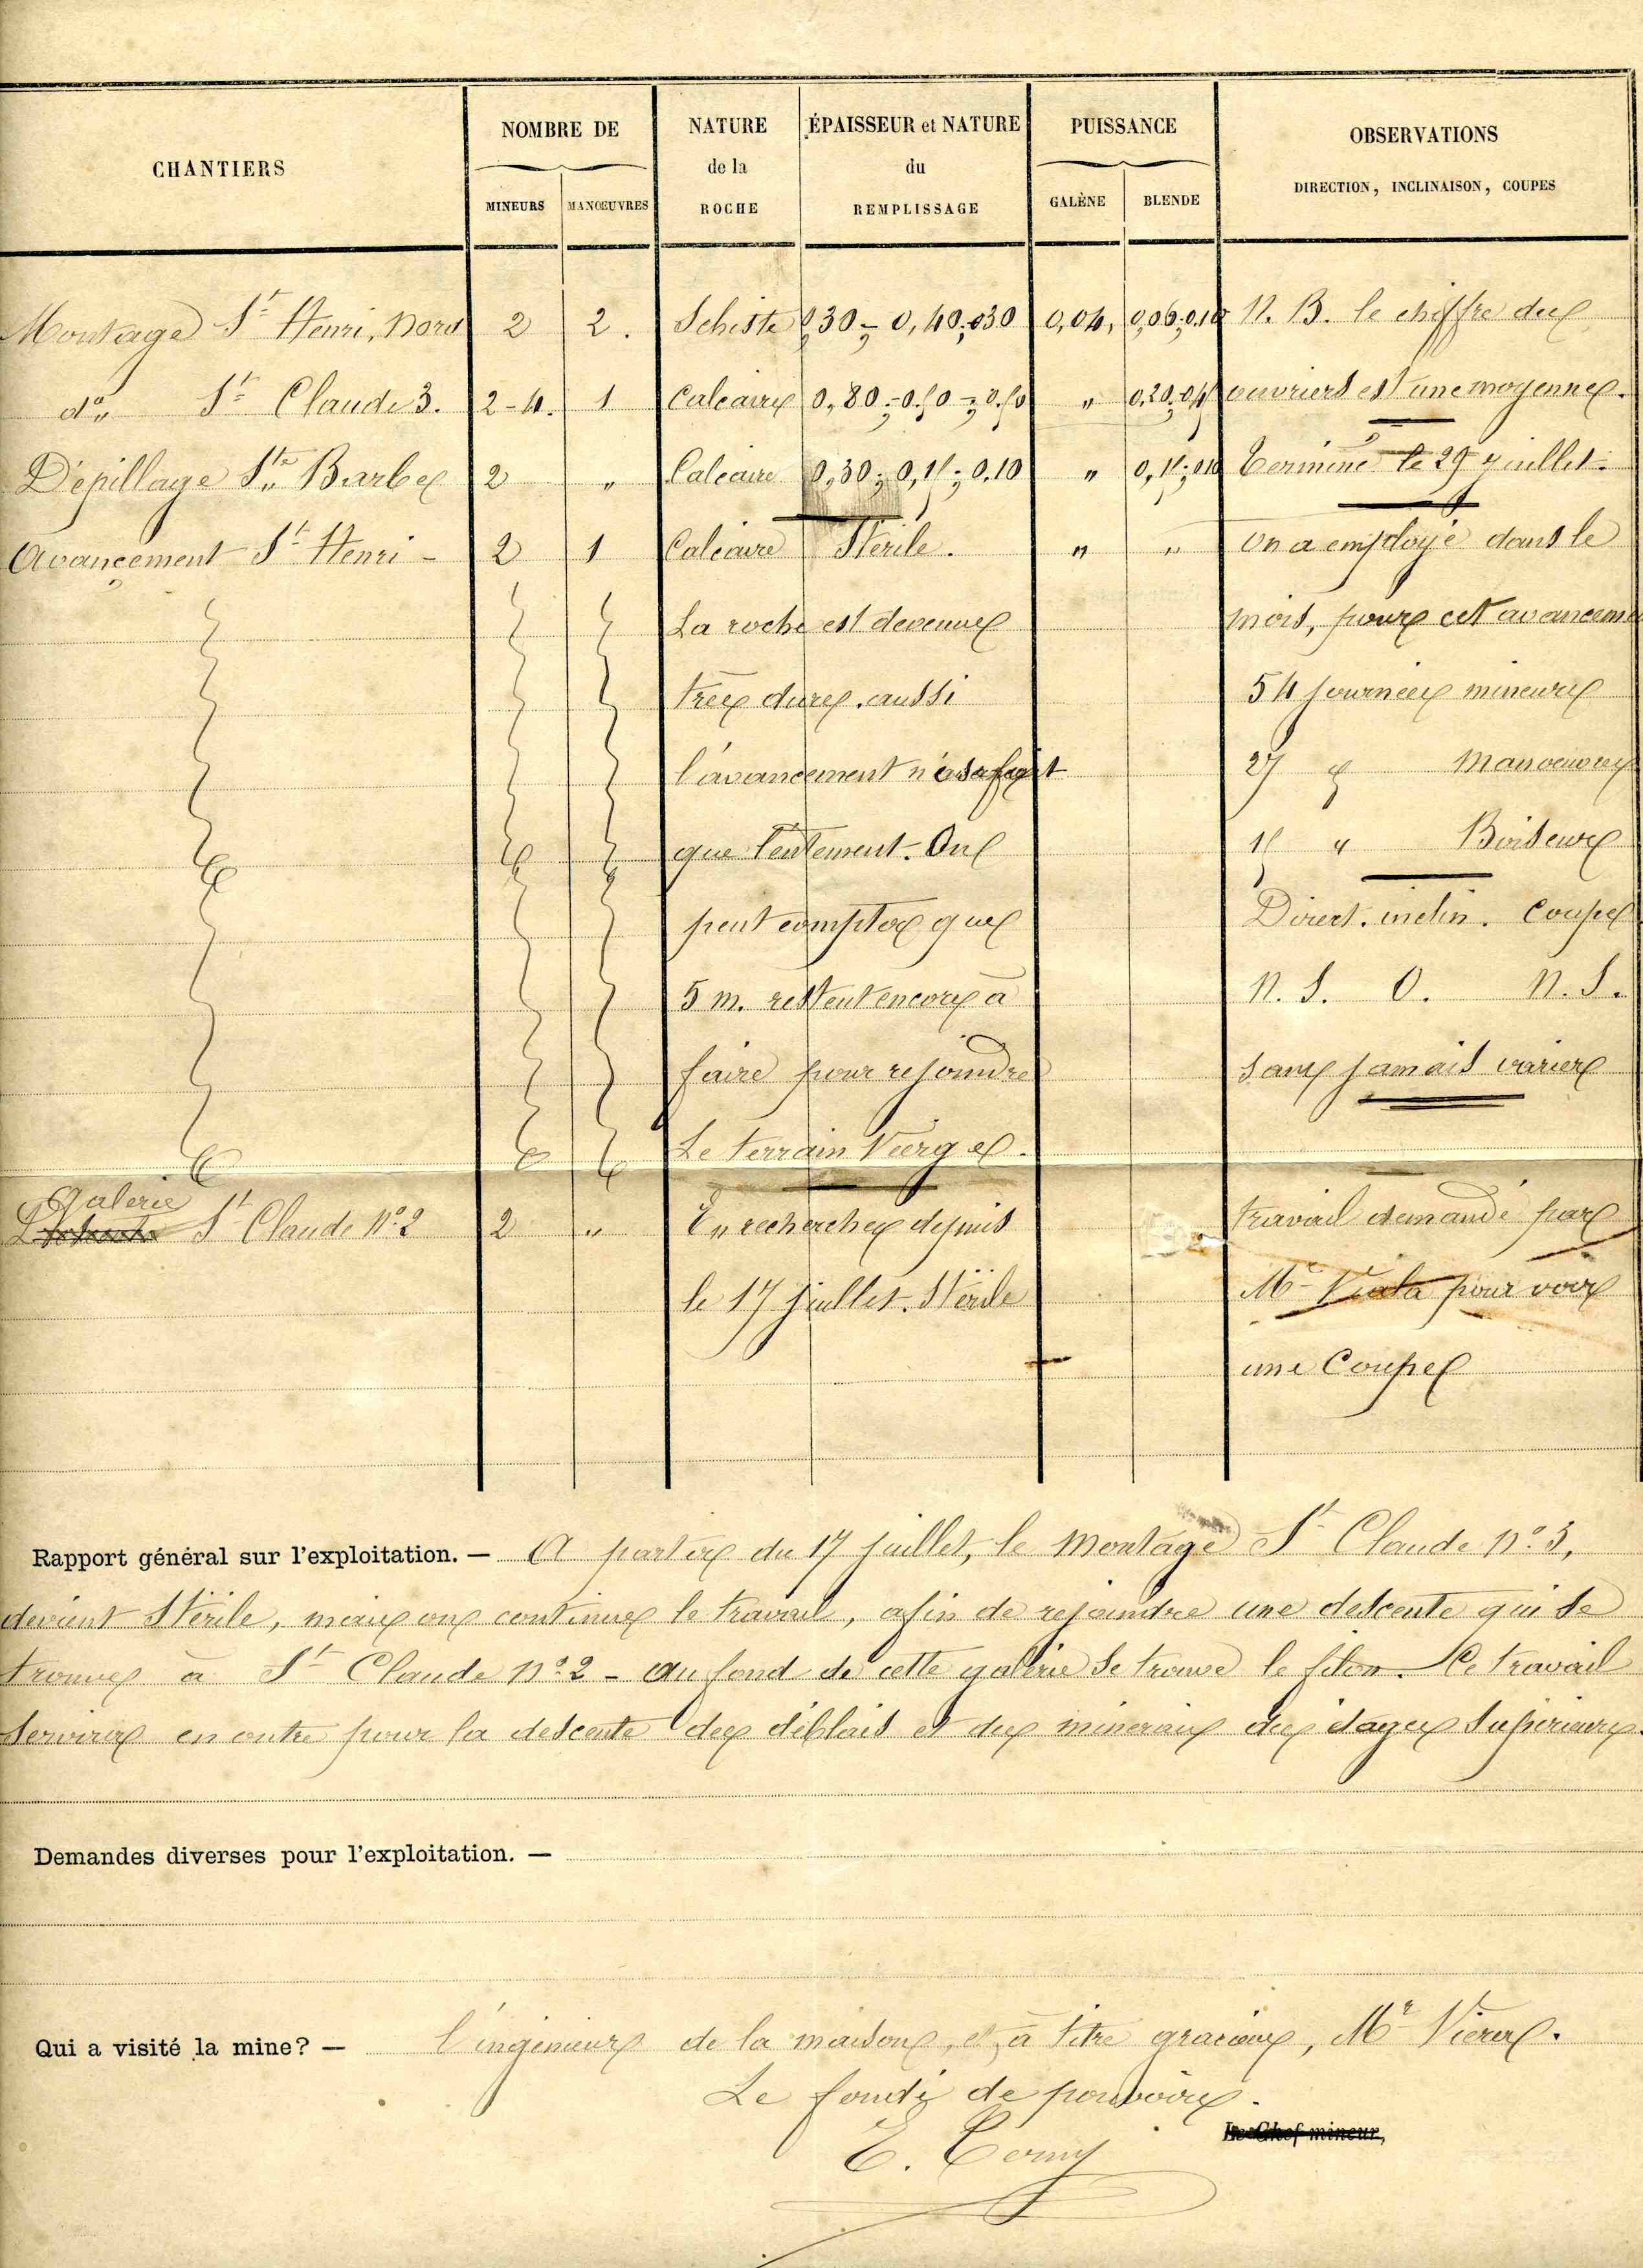 CHANTIERS NOMBRE DE NATURE ÉPAISSEUR et NATURE PUISSANCE OBSERVATIONS
de la du
MINEURS MANŒUVRES ROCHE REMPLISSAGE GALÈNE BLENDE DIRECTION, INCLINAISON, COUPES
Montage St Henri, Nord 2 2. Schiste 0,30 - 0,40; 030 0,04, 0,06; 0.10 N. B. le chiffre des
do St Claude 3. 2-4. 1 Calcaire 0,80 - 0.50 - 0.50 " 0,20; ouvriers est une moyenne.
Dépillage Ste Barbe 2 " Calcaire 0,30; 0,15; 0.10 " 0,15; 0.10 Terminé le 29 juillet.
Avançement St Henri - 2 1 Calcaire Stérile. " " On a employé dans le
La roche est devenue mois, pour cet avanceme
très dure. aussi 54 journées mineurs
l'avancement n'a fait 27 " Manoeuvres
que lentement. On 15 " Boiseurs
peut compter que Direct. inclin. Coupe
5 m. restent encore à N. S. O. N. S.
faire pour rejoindre sans jamais varier
Le terrain Vierge.
Galerie
St Claude No 2 2 " En recherches depuis travail demandé par
le 17 juillet. Stérile Mr Viala pour voir
une Coupe
Rapport général sur l'exploitation. — A partir du 17 juillet, le Montage St Claude No 3,
devient Stérile, mais on continue le travail, afin de rejoindre une descente qui se
trouve à St Claude No 2 - Au fond de cette galerie se trouve le filon. Ce travail
servira en outre pour la descente des déblais et des minerais des étages supérieurs.
Demandes diverses pour l'exploitation. —
Qui a visité la mine? — l'ingénieur de la maison, et, à titre gracieux, Mr
Le fondé de pouvoirs.
Le Chef mineur,
E.